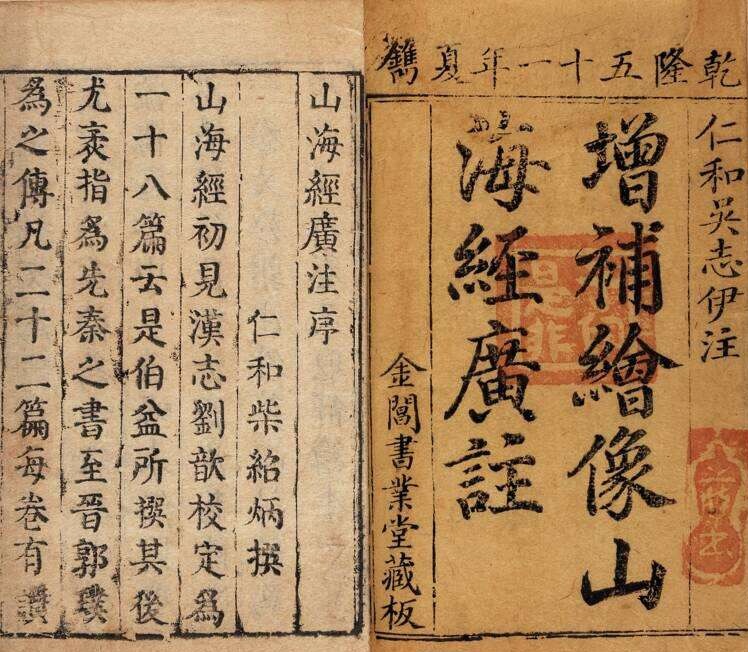 乾隆五十一年夏鐫
仁和吳志伊注
增補繪像山
海經廣註
金閶書業堂藏板
山海經廣注序
仁和柴紹炳撰
山海經初見漢志劉歆校定為
一十八篇云是伯益所撰其後
尤袤指為先秦之書至晉郭璞
為之傳凡二十二篇每卷有讚